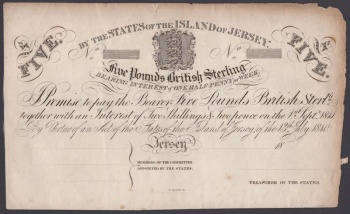 BY THE STATES OF THE ISLAND OF JERSEY.
FIVE. FIVE.
No. No.
Five Pounds British Sterling
BEARING INTEREST of ONE HALF-PENNY pr WEEK.
I Promise to pay the Bearer Five Pounds British Sterlg.
together with an Interest of Five Shillings & Five pence on the 1st Septr.
By Virtue of an Act of the States of the Island of Jersey, of the July
Jersey 18
MEMBERS OF THE COMMITTEE
APPOINTED BY THE STATES.
TREASURER OF THE STATES.